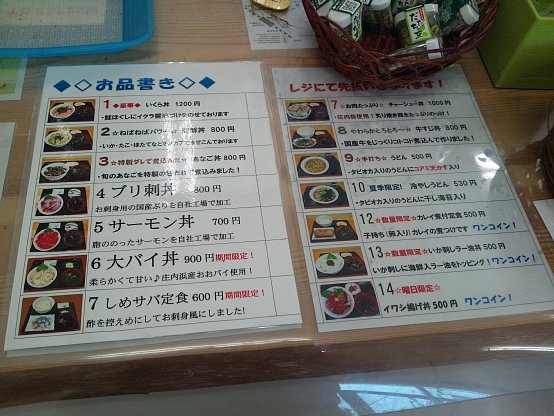 ◆◇お品書き◇◆
1 ◆豪華◆ いくら丼 1200円
・鮭はぐしにイクラ醤油づけをのせております
2 ☆ねばねばパワー☆ 海鮮丼 800円
・いか・たこ・ほたてなどをメカブで水ぜこんでおります
3 ☆特製ダレで煮込んだ☆あなご丼 800円
・旬のあなごを特製のたれで煮込みました!
4 ブリ刺丼 800円
お刺身用の国産ぶりを自社工場で加工
5 サーモン丼 700円
脂ののったサーモンを自社工場で加工
6 大バイ丼 900円 期間限定!
柔らかくて甘い♪庄内浜産おおバイ使用!
7 しめサバ定食 600円 期間限定!
酢を控えめにしてお刺身風にしました!
レジにて先払い
ます!
7 ☆お肉たっぷり☆ チャーシュー丼 1000円
8 やわらかとろとろ~☆ 牛すじ丼 800円
国産牛をじっくりコトコト煮込んで作りました!
9 ☆手打ち☆ うどん 500円
・タピオカ入りのうどんにコアミ天かす入り
10 夏季限定! 冷やしうどん 530円
・タピオカ入りのうどんに干し海苔入り
12 ☆数量限定☆カレイ煮付定食 500円
子持ち(卵入り)カレイの煮つけです ワンコイン!
13 ☆数量限定☆いか刺しラー油丼 500円
いか刺しに海鮮入ラー油をトッピング! ワンコイン!
14 ☆曜日限定☆
イワシ揚げ丼 500円 ワンコイン!